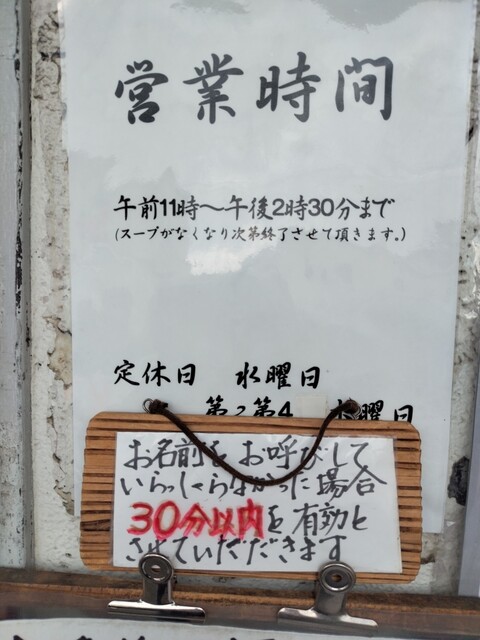 営業時間
午前11時〜午後2時30分まで
(スープがなくなり次第終了させて頂きます。)
定休日 水曜日
第2第4 木曜日
お名前を お呼びして
いらっしゃらなかった場合
30分以内を有効と
させていただきます